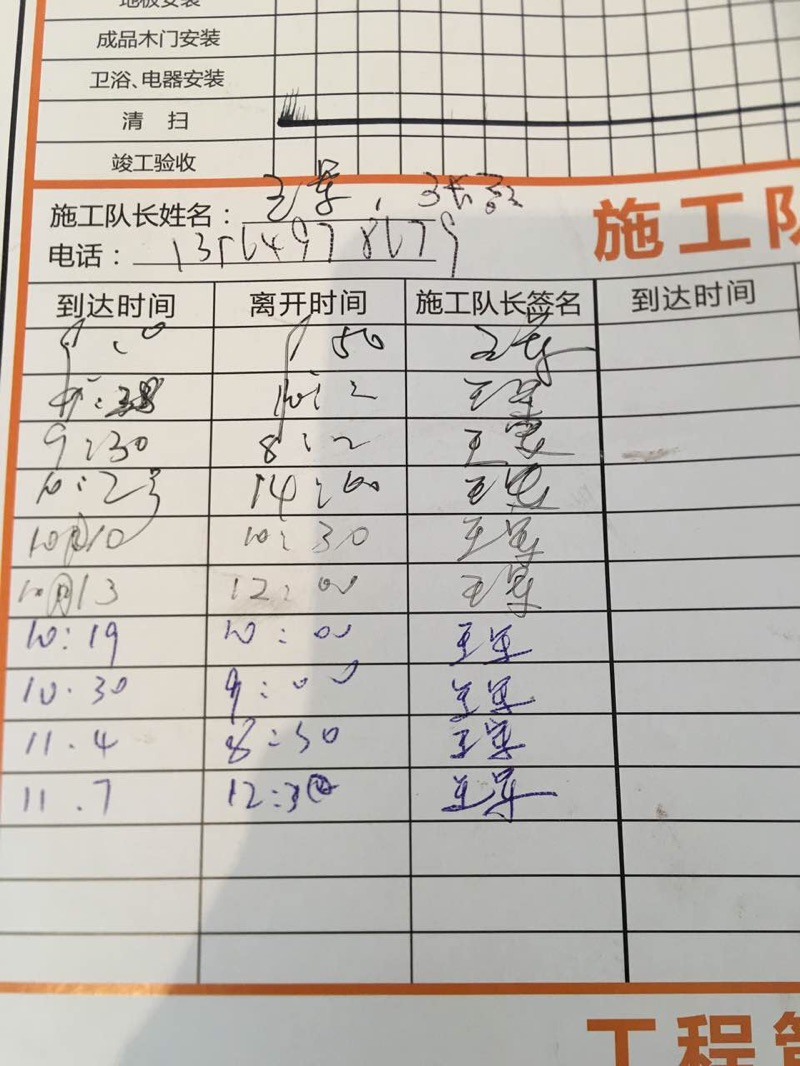 地板安装
成品木门安装
卫浴、电器安装
清 扫
竣工验收
施工队长姓名: 王军,
施工队
电话:
到达时间 离开时间 施工队长签名 到达时间
50 王军
王军
9:30 8:2 王军
10:2号 14:00 王军
10月10 10:30 王军
10月13 12:00 王军
10:19 10:00 王军
10.30 9:00 王军
11.4 8:30 王军
11.7 12:30 王军
工程管